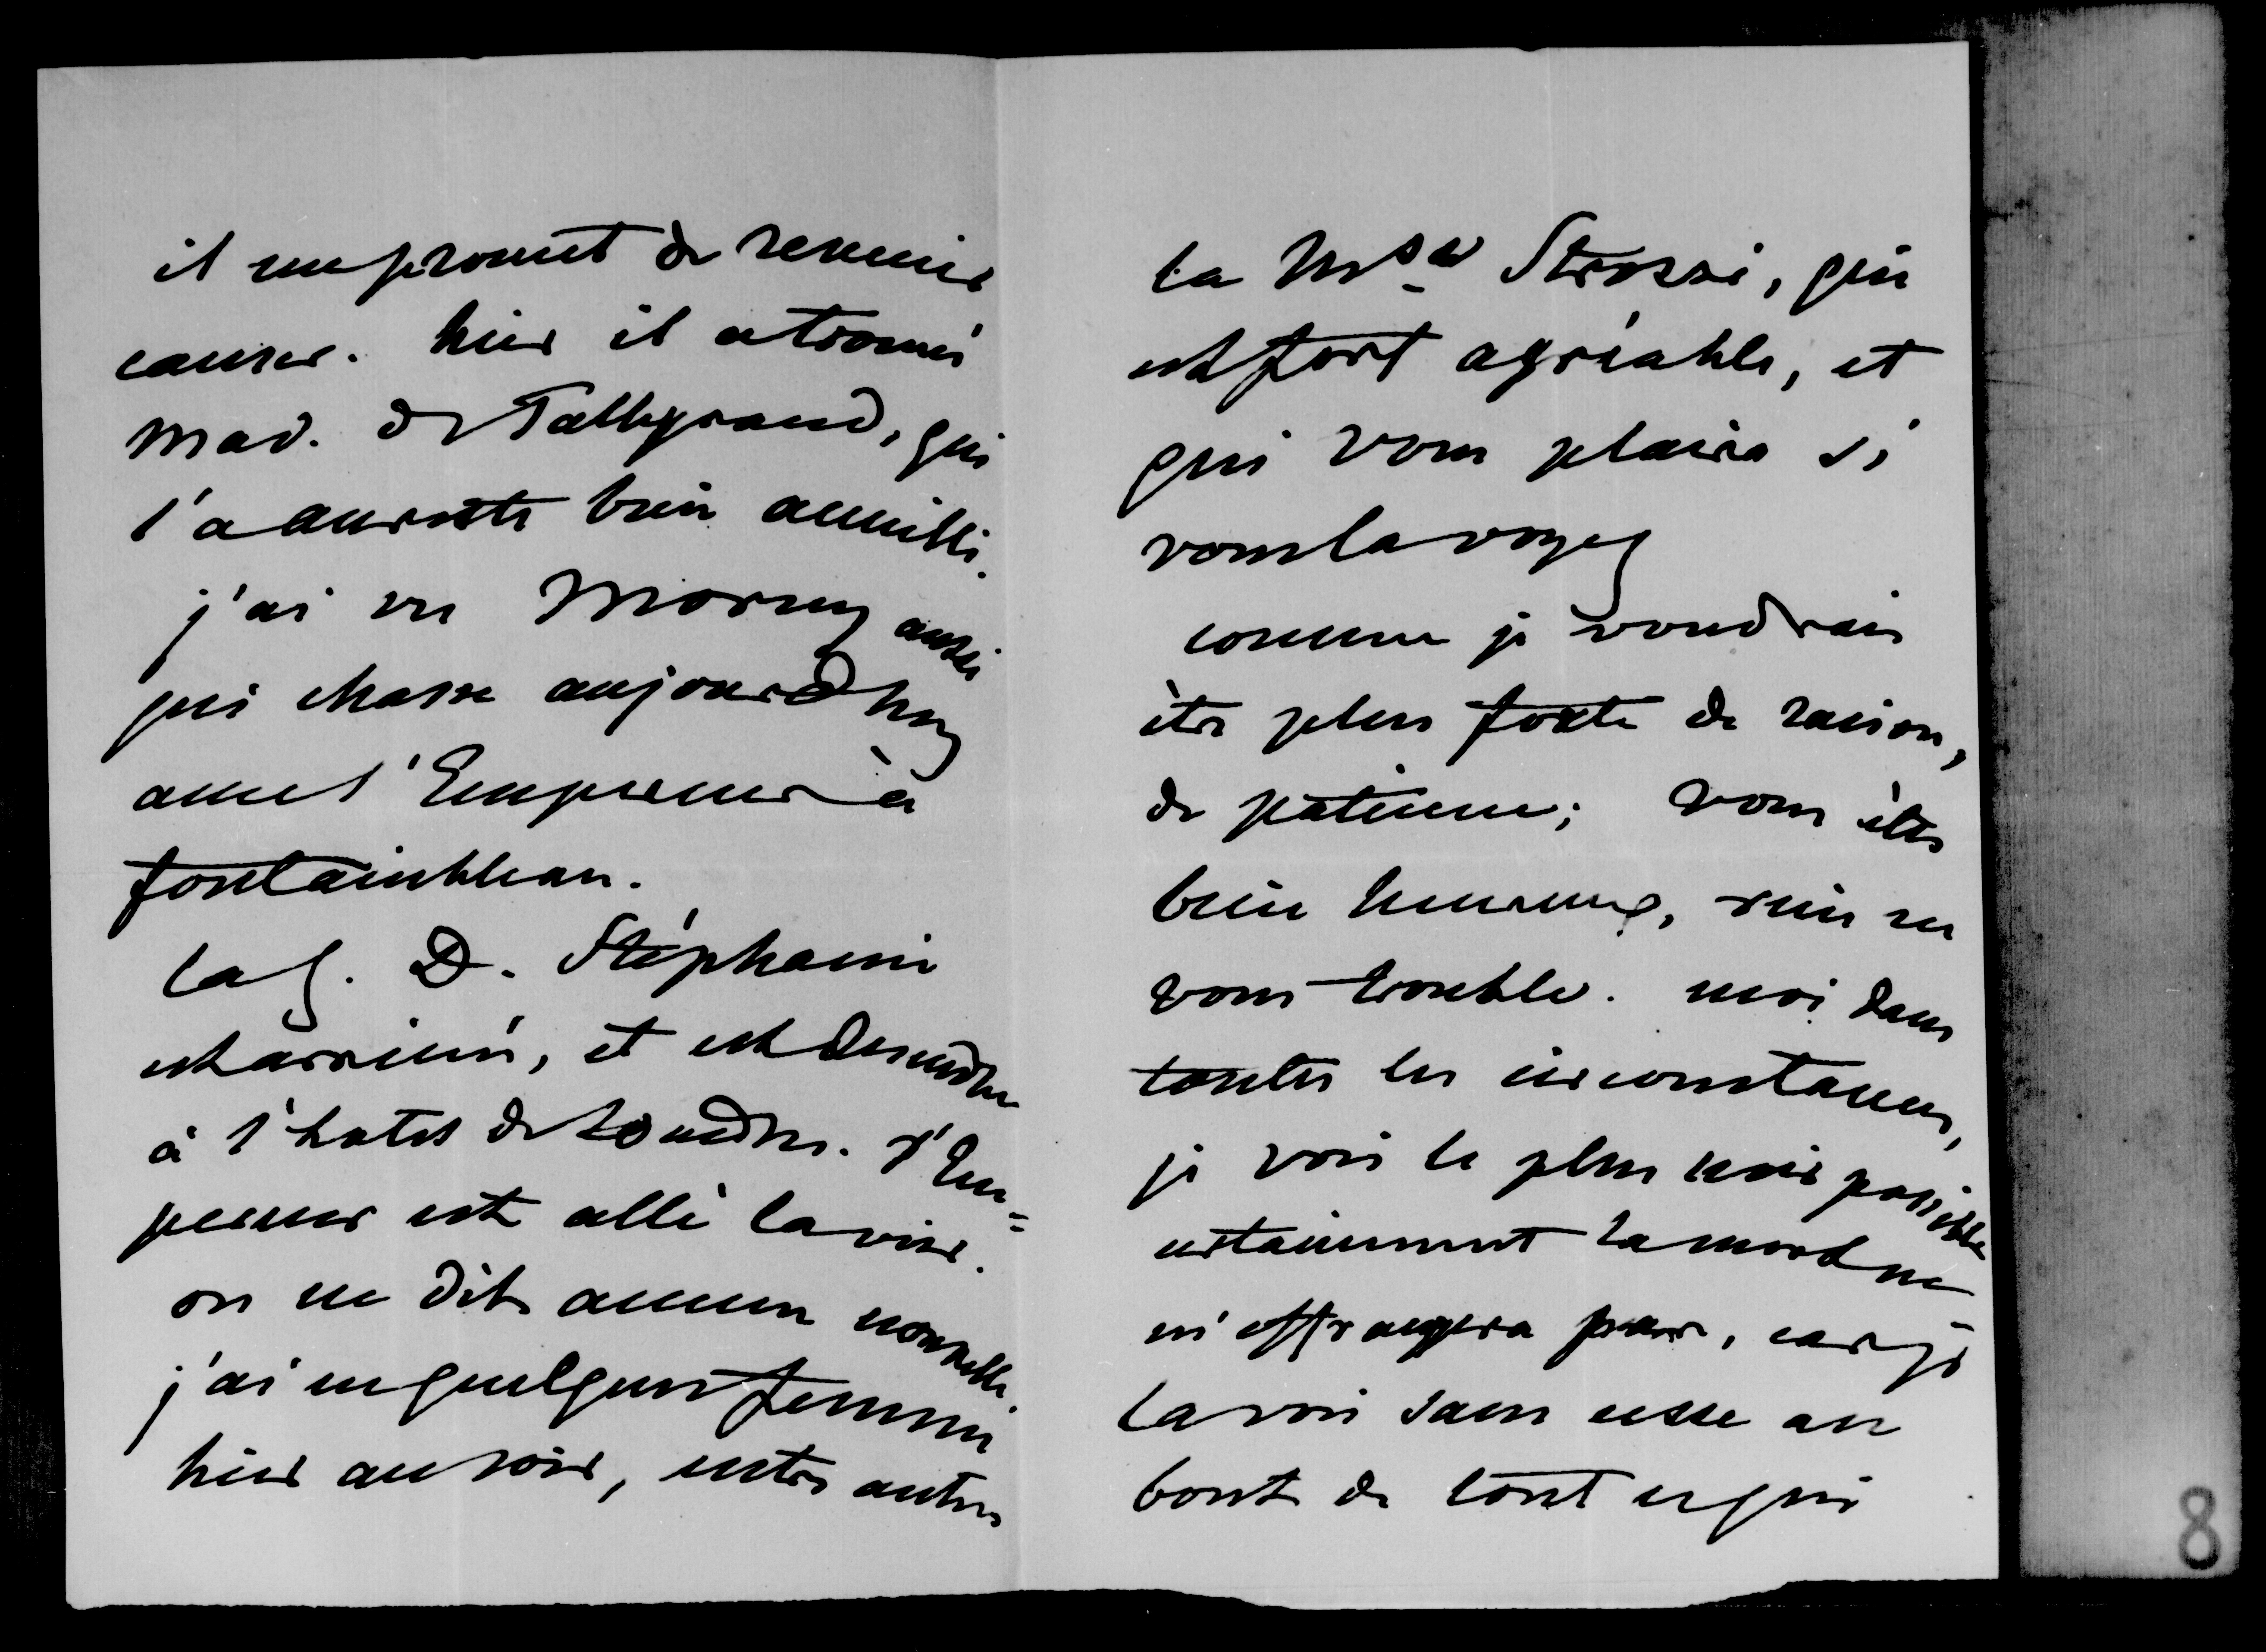 il me promet de revenir
causer. hier il a trouvé
Mad. de Talleyrand, qui
l'a   bien accueilli.
j'ai vu Morny aussi
qui chasse aujourd'huy
avec l'Empereur à
fontainebleau.
la g. D. Stéphanie
est arrivée, et est descendue
à l'hotel de Londres. L'Em=
pereur est allé la voir.
on ne dit aucune nouvelle.
j'ai vu quelques femmes
hier au soir, entre autres
la Mse Strozzi, qui
est fort agréable, et
qui vous plaira si
vous la voyez
comme je voudrais
être plus forte de raison,
de patience; vous êtes
bien heureux, rien ne
vous trouble. moi dans
toutes les circonstances,
je vois le plus noir possible
certainement la mort ne
m'effrayera pas, car je
la vois sans cesse au
bout de tout ce qui
8